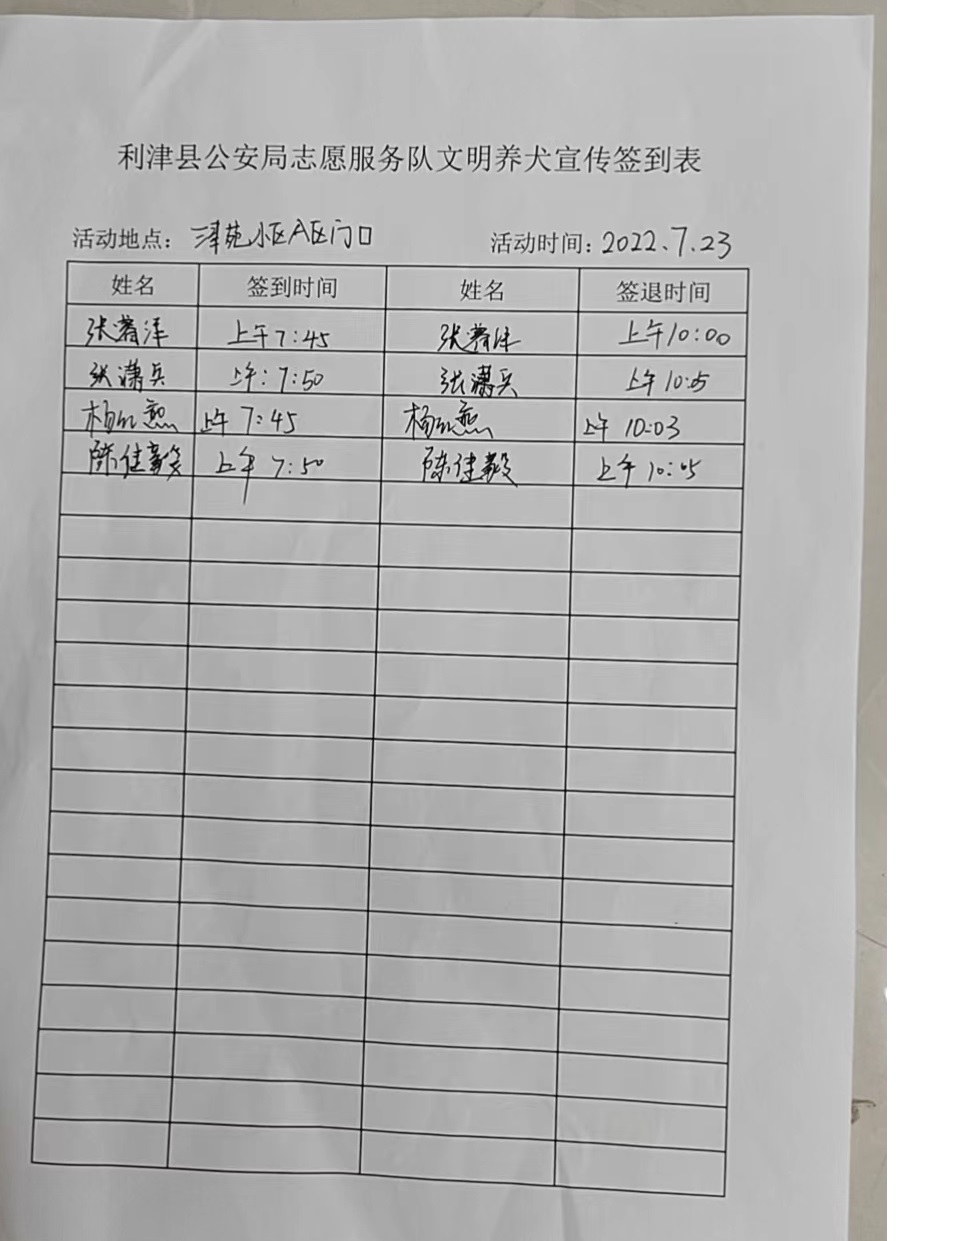 利津县公安局志愿服务队文明养犬宣传签到表
活动地点：津苑小区A区门口 活动时间：2022.7.23
姓名 签到时间 姓名 签退时间
张 上午7:45 张 上午10:00
张潇兵 上午:7:50 张潇兵 上午10:05
杨 上午7:45 杨 上午10:03
陈佳毅 上午7:50 陈佳毅 上午10:05